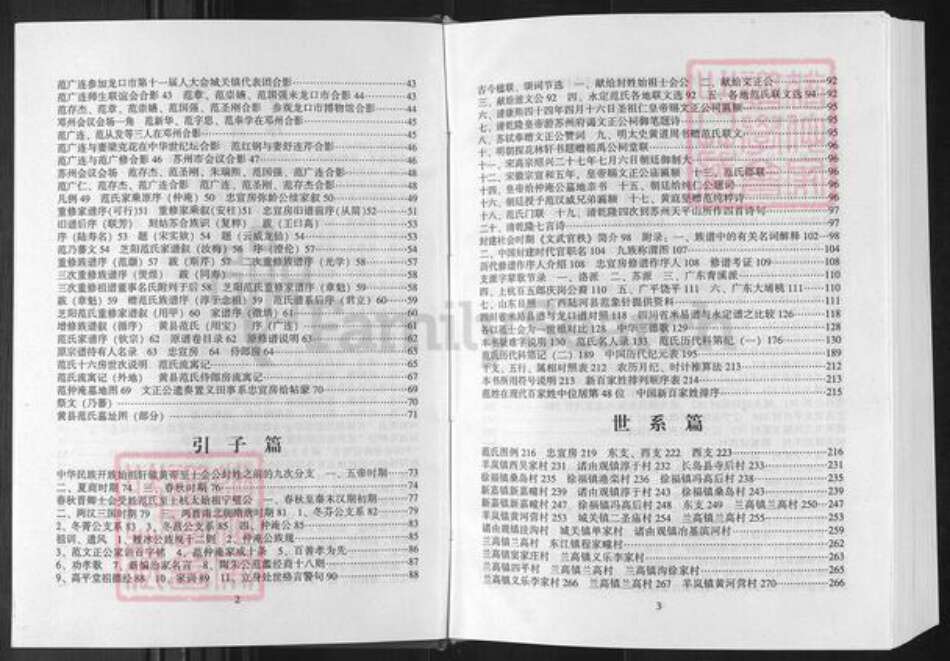 范广连参加龙口市第十一届人大会城关镇代表团合影……43
范广连师生联谊会合影 43 范孝、范崇嶓、范国强来龙口市合影 44……43
范存杰、范孝、范崇嶓、范国强、范圣刚合影 参观龙口市博物馆合影……44
邓州会议会场一角 范新华、范字思、范奉学在邓州合影……45
范广连、范从发等三人在邓州合影……45
范广连与妻梁克花在中华世纪坛合影 范红钢与妻舒连芹合影……46
范广连与范广修合影 46 苏州市会议合影 47……46
苏州会议会场 范存杰、范圣刚、朱瑞熙、范国强、范广连合影……48
范广仁、范存杰、范广连合影 范广连、范圣刚、范存杰合影……48
凡例 49 范氏家乘原序（仲淹）50 忠宣房弥龄公续家叙 50……49
重修家谱序(可行)51 重修家乘叙(安柱)51 忠宣房旧谱前序(从简)52……51
旧谱后序（联芳） 则姑苏合族识（复粹） 跋（王曰高）……53
序（陆寿名）53 题（宋实颖）54 题（云威龙仙）54……53
范乃蕃文 54 芝阳范氏家谱叙（汝梅）56 序（澄伦）57……54
重修族谱序（范灏）57 跋（斯芹）57 二次重修族谱序（光学）58……57
三次重修族谱序（煚煌） 跋（同寿）……58
三次重修祖谱董事名氏附列于后 58 芝阳范氏重修家谱序（章魁）59……58
跋（章魁）59 赠范氏族谱序（淳于念祖）59 范氏谱系后序（世立）60……59
芝阳范氏重修家谱叙（用甲）60 家谱序（微炳）61……60
增修族谱叙（循序） 黄县范氏（用宝） 序（广连）……61
范氏家谱序（钦宗）62 原谱卷目录 62 原修谱说明 63……62
原宗谱待有人名录 63 忠宣房 64 侍郎房 64……63
范氏十六房世次说明 范氏流寓记……65
范氏流寓记（外地） 黄县范氏侍郎房流寓记……67
范仲淹墓地图 69 文正公遗奏置义田事系忠宣房给帖蒙 70……69
祭文（乃蕃）……70
黄县范氏墓址图（部分）……71
引子篇
中华民族开族始祖轩辕黄帝至士会公封姓之前的九次分支 一、五帝时期……73
二、夏商时期 74 三、春秋时期 76……74
春秋晋卿士会受姓范氏至上杭太始祖宇璧公 一、春秋至秦末汉彻初期……77
二、两汉三国时期 79 两晋南北朝隋唐时期 81 1、冬芬公支系 82……79
2、冬菁公支系 83 3、冬昌公支系 85 四、仲淹公 85……83
祖训、遗风 1、履冰公族规十二则 2、仲淹公族规……85
3、范文正公家训百字铭 4、范仲淹家戒十条 5、百善孝为先……86
6、劝孝歌 7、新编治家名言 8、陶朱公范蠡经商十八则……87
9、高平堂祖德经 88 10、家训 89 11、立身处世格言警句 90……88
2
古今楹联、颂词节选 一、献给封姓始祖士会公 二、献给文正公……92
三、献给逵文公 92 四、永定范氏各地联文选 92 五、各地范氏联文选 94……92
六、清康熙四十四年四月十六日圣祖仁皇帝赐文正公祠匾额……95
七、清乾隆皇帝游苏州府谒文正公祠御笔题诗……95
八、苏轼奉赠文正公赞词 九、明太史黄道周书赠范氏联文……95
十、明朝探花林轩书题赠祖禹公祠堂联……96
十一、宋高宗绍兴二十七年七月六日朝廷御制大……96
十二、宋徽宗宣和五年，皇帝赐文正公庙额 十三、范氏郡联……96
十四、皇帝给仲淹公墓地亲书 十五、朝廷给纯仁公题词……96
十六、朝廷授予范汉威兄弟匾额 十七、黄庭坚赠范纯粹诗……96
十八、范氏门联 十九、清乾隆四次到苏州天平山所作四首诗句……97
二十、清乾隆七言诗……97
封建社会时期《文武官秩》简介 98 附录：一、族谱中的有关名词解释 102……98
二、中国封建时代官职名 104 九族称谓图 107……104
历代修谱作序人介绍 108 忠宣房修谱作序人 108 修谱考证 109……108
支派字辈歌节录 一、洛派 二、苏派 三、广东青溪派……110
四、上杭百五郎庆岗公裔 110 五、广平饶平 111 六、广东大埔桃 111……110
七、山东吕熙 广西陆河县范象针提供资料……111
四川省木易昌谱与龙口谱对照 118 四川省木易谱与永定谱之比较 126……118
各以范士会为一世祖对比 128 中华三德歌 129……128
本书疑难字说明 130 范氏名人录 133 范氏历代科第纪（一）176……130
范氏历代科第记（二）189 中国历代纪元表 195……189
干支、五行、属相对照表 212 农历月纪、时计推算法 213……212
本书所用符号说明 213 新百家姓排列顺序表 214……213
范姓在现代百家姓中位居第 48 位 中国新百家姓排序……215
世系篇
范氏图例 216 忠宣房 219 东支、西支 222 西支 223……216
羊岚镇西吴家村 231 诸由观镇淳于村 232 长岛县寺后村 233……231
徐福镇桑岛村 235 徐福镇港栾村 236 徐福镇冯高村 238……235
新嘉镇新嘉疃村 239 诸由观镇淳于村 243 徐福镇桑岛村 243……239
新嘉镇新嘉疃村 247 徐福镇冯高村 248 东支 249 兰高镇兰高村 250……247
羊岚镇黄河营村 253 城关镇二圣庙村 254 兰高镇兰高村 255……253
诸由观镇涧沟村 城关镇单家村 诸由观镇冶基滨河村……259
兰高镇兰高村 东江镇程家疃村……262
兰高镇窦家庄村 兰高镇义乐李家村……263
兰高镇四平村 兰高镇兰高村 兰高镇沟徐家村……265
兰高镇义乐李家村 266 兰高镇兰高村 267 羊岚镇黄河营村 270……266
3